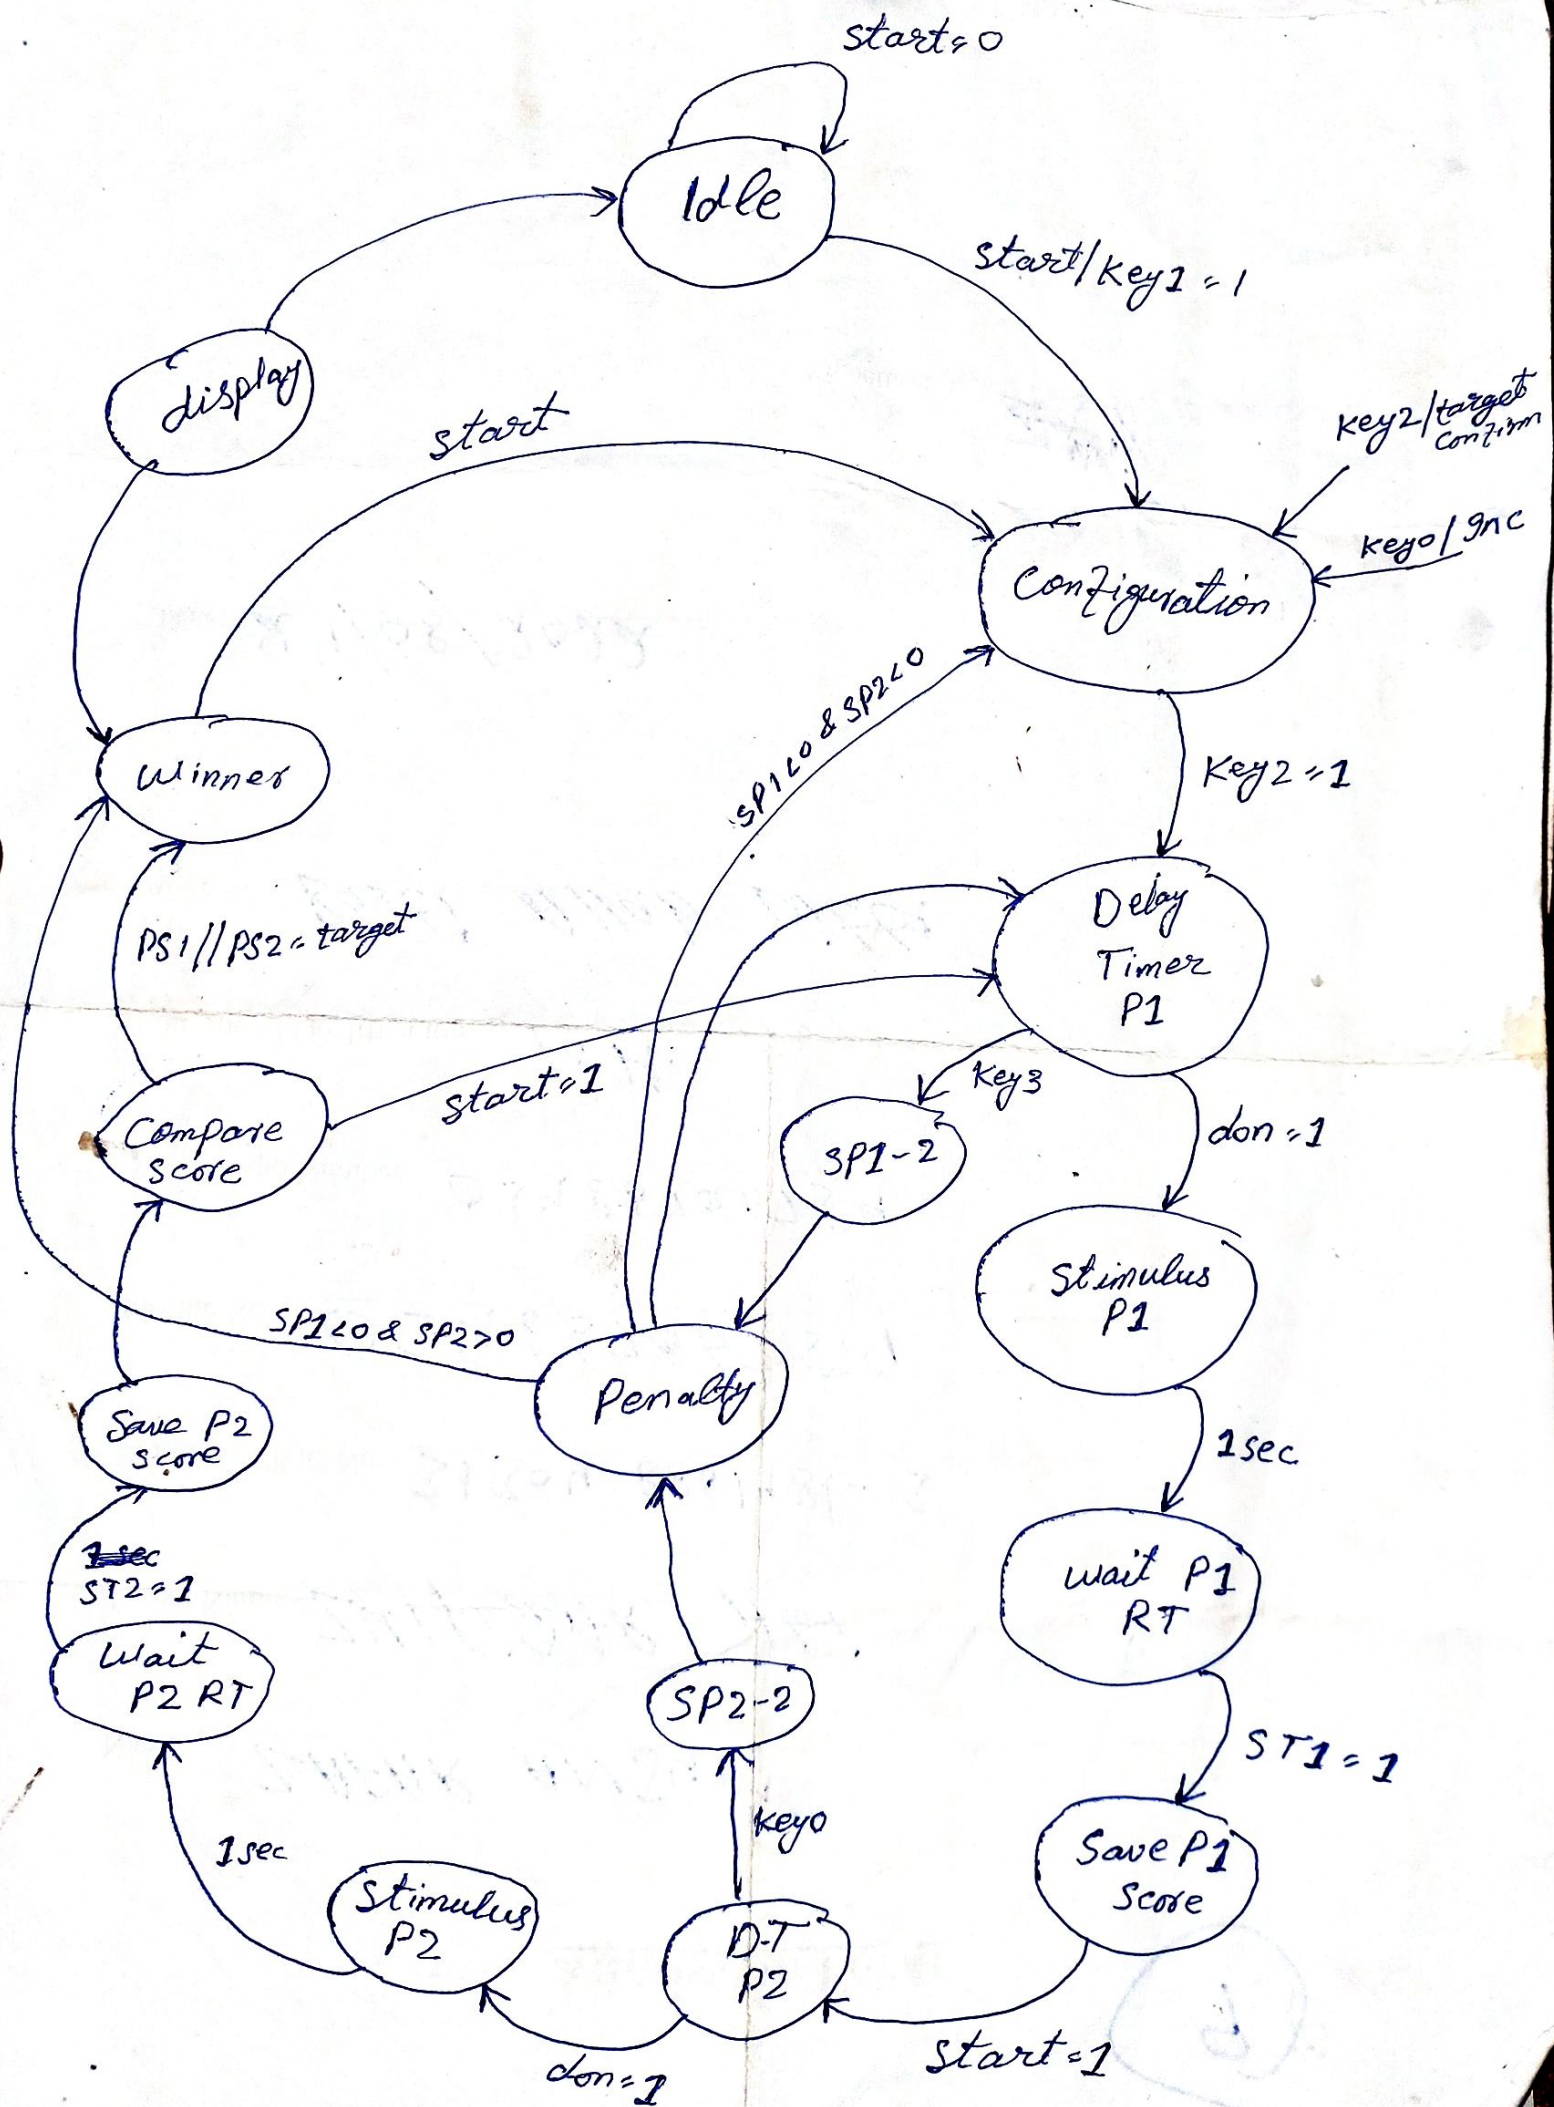 start=0
Idle
start/Key1=1
display
start
Key2/target
Confirm
Key0/Inc
Configuration
SP1<0 & SP2<0
Winner
Key2=1
Delay
Timer
P1
PS1//PS2=target
Key3
start=1
Compare
score
SP1-2
don=1
Stimulus
P1
SP1<0 & SP2>0
Penalty
Save P2
score
1sec
1sec
ST2=1
Wait P1
RT
Wait
P2 RT
SP2-2
ST1=1
Key0
1sec
Save P1
Score
Stimulus
P2
D-T
P2
start=1
don=1